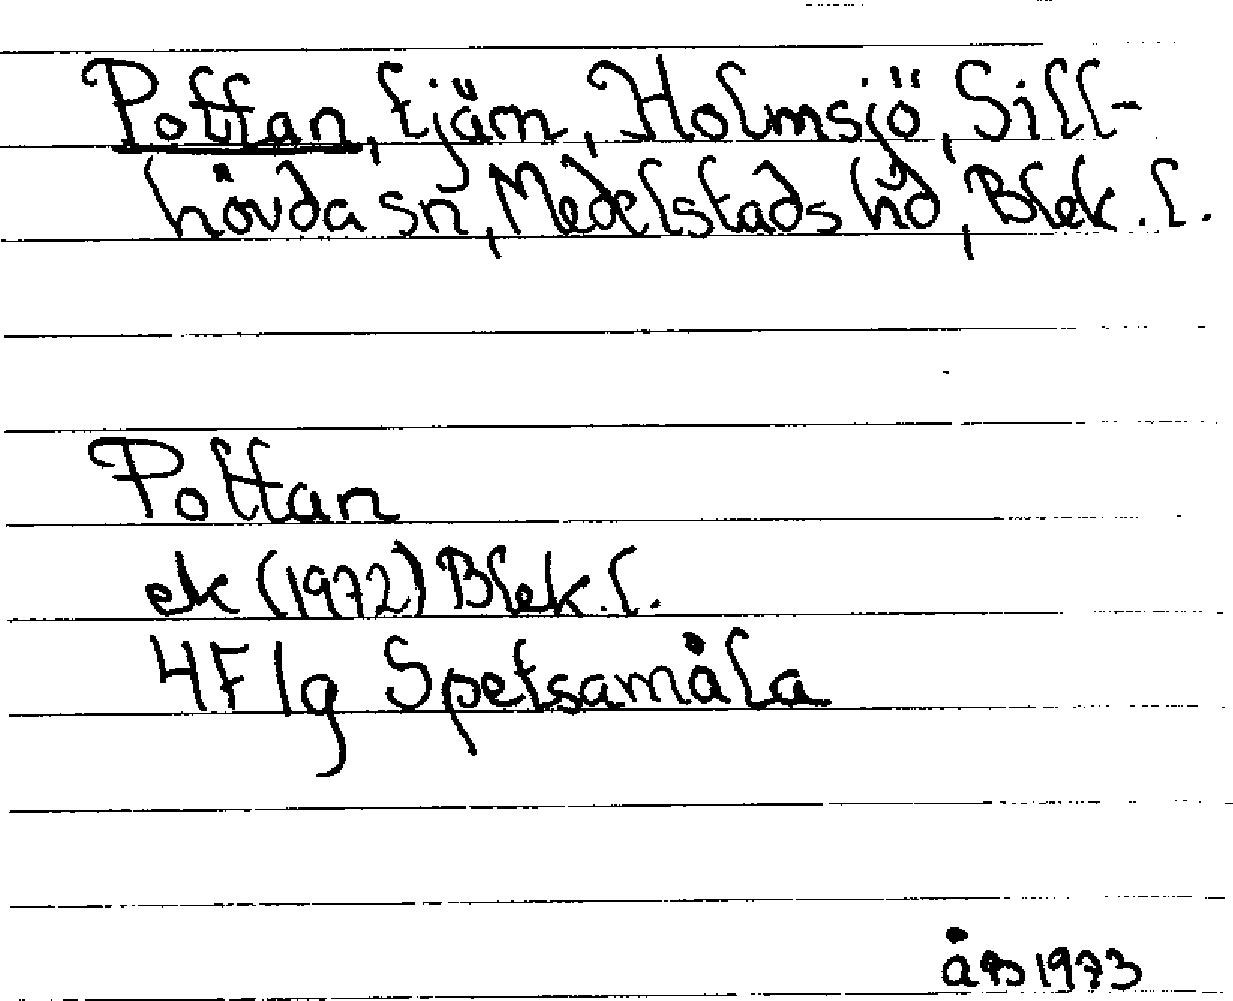 Pottan, tjärn, Holmsjö, Sill-
hövda sn, Medelstads hd, Blek. l.
Pottan
ek (1972) Blek. l.
4F 1g Spetsamåla
1973